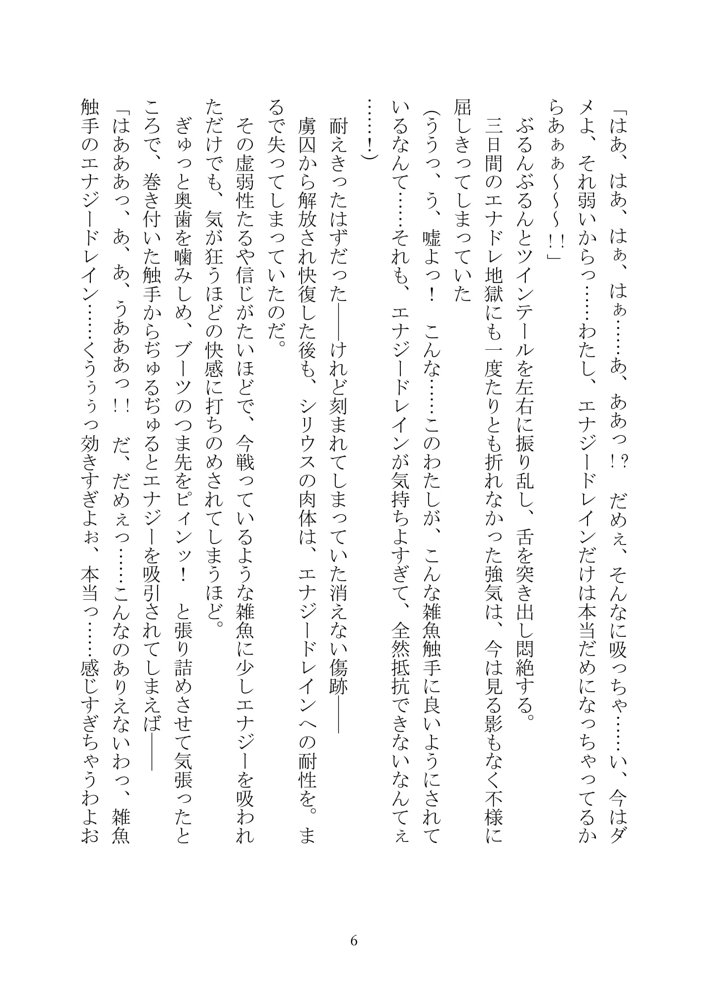 「はあ、はあ、はぁ、はぁ……あ、ああっ!?　だめぇ、そんなに吸っちゃ……い、今はダ
メよ、それ弱いからっ……わたし、エナジードレインだけは本当だめになっちゃってるか
らあぁぁ～～～!!」
　ぶるんぶるんとツインテールを左右に振り乱し、舌を突き出し悶絶する。
　三日間のエナドレ地獄にも一度たりとも折れなかった強気は、今は見る影もなく不様に
屈しきってしまっていた
（ううっ、う、嘘よっ！　こんな……このわたしが、こんな雑魚触手に良いようにされて
いるなんて……それも、エナジードレインが気持ちよすぎて、全然抵抗できないなんてぇ
……！）
　耐えきったはずだった――けれど刻まれてしまっていた消えない傷跡――
　虜囚から解放され快復した後も、シリウスの肉体は、エナジードレインへの耐性を。ま
るで失ってしまっていたのだ。
　その虚弱性たるや信じがたいほどで、今戦っているような雑魚に少しエナジーを吸われ
ただけでも、気が狂うほどの快感に打ちのめされてしまうほど。
　ぎゅっと奥歯を噛みしめ、ブーツのつま先をピィンッ！　と張り詰めさせて気張ったと
ころで、巻き付いた触手からぢゅるぢゅるとエナジーを吸引されてしまえば――
「はあああっ、あ、あ、うあああっ!!　だ、だめぇっ……こんなのありえないわっ、雑魚
触手のエナジードレイン……くうぅぅっ効きすぎよぉ、本当っ……感じすぎちゃうわよお
6